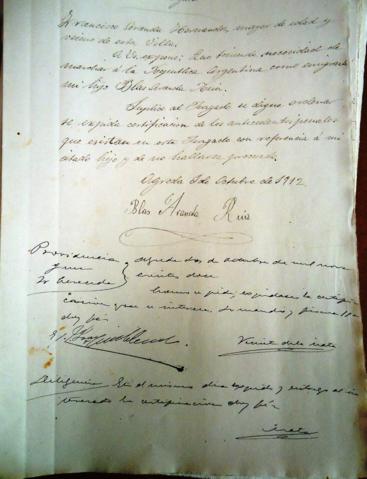 Francisco Aranda Hernandez, mayor de edad y
vecino de esta Villa
A Vs. expone: Que teniendo necesidad de
marchar á la Republica Argentina como emigrante
mi hijo Blas Aranda Ruiz.
Suplico al Juzgado se digne ordenar
se expida certificacion de los antecedentes penales
que existan en este Juzgado con referencia á mi
citado hijo y de no hallarse procesado.
Agreda 2 de Octubre de 1912.
Blas Aranda Ruiz
Providencia Agreda dos de octubre de mil nove
Juez cientos doce
Sr
como se pide, expidase la certifi
cacion que se interesa. Lo mando y firma S.S.
doy fé
Diligencia En el mismo dia expido y entrego al in
teresado la certificacion doy fé